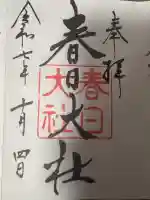 奉拝
春日大社
春日
大社
令和七年十月四日